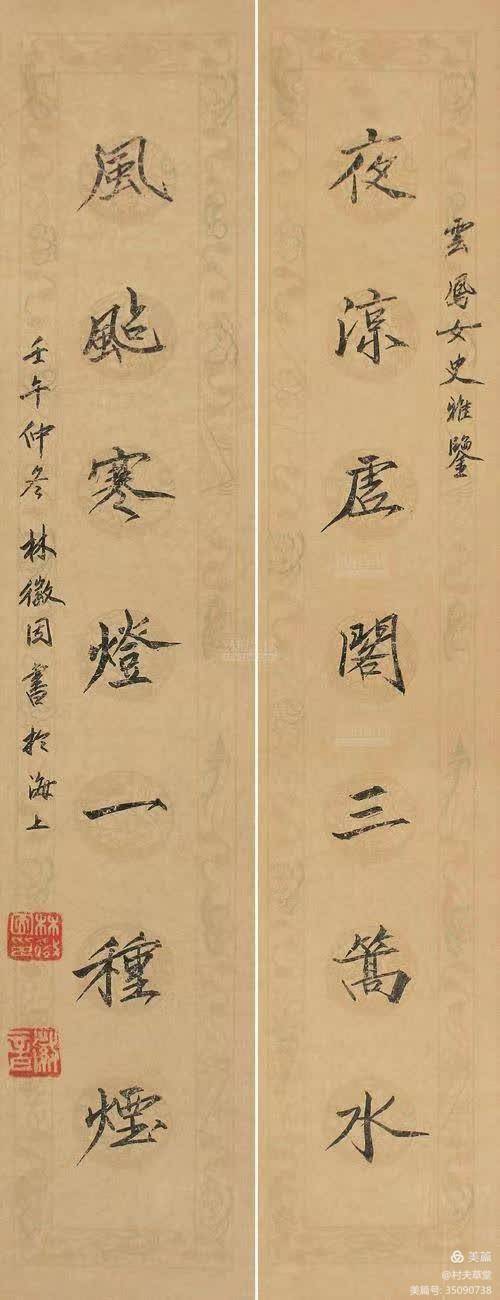 雲鳳女史雅鑒
夜涼虛閣三篙水
風颭寒燈一種煙
壬午仲冬林徽因書於海上
美篇
@村夫草堂
美篇号: 35090738